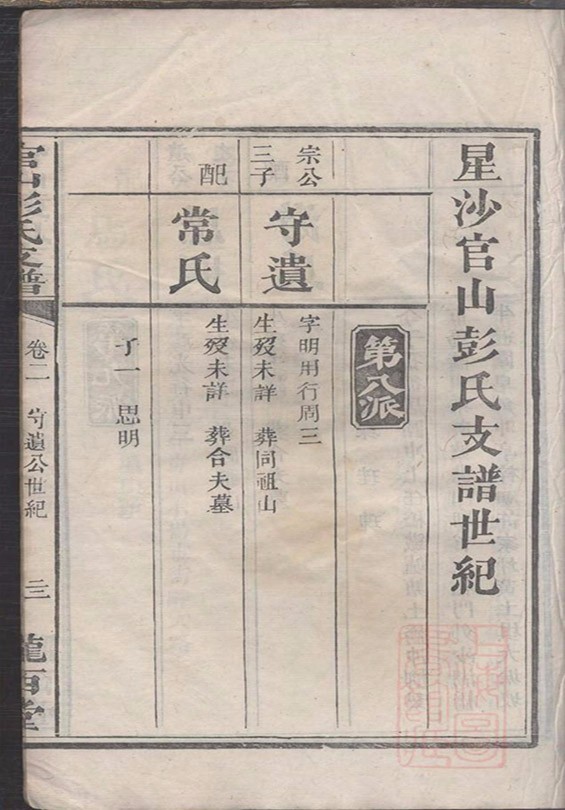 星沙官山彭氏支譜世紀
第八派
宗公
三子
守遺
字明用行周三
生歿未詳 葬同祖山
配
常氏
生歿未詳 葬合夫墓
子一 思明
官山彭氏支譜
卷二 守遺公世紀 三 隴西堂